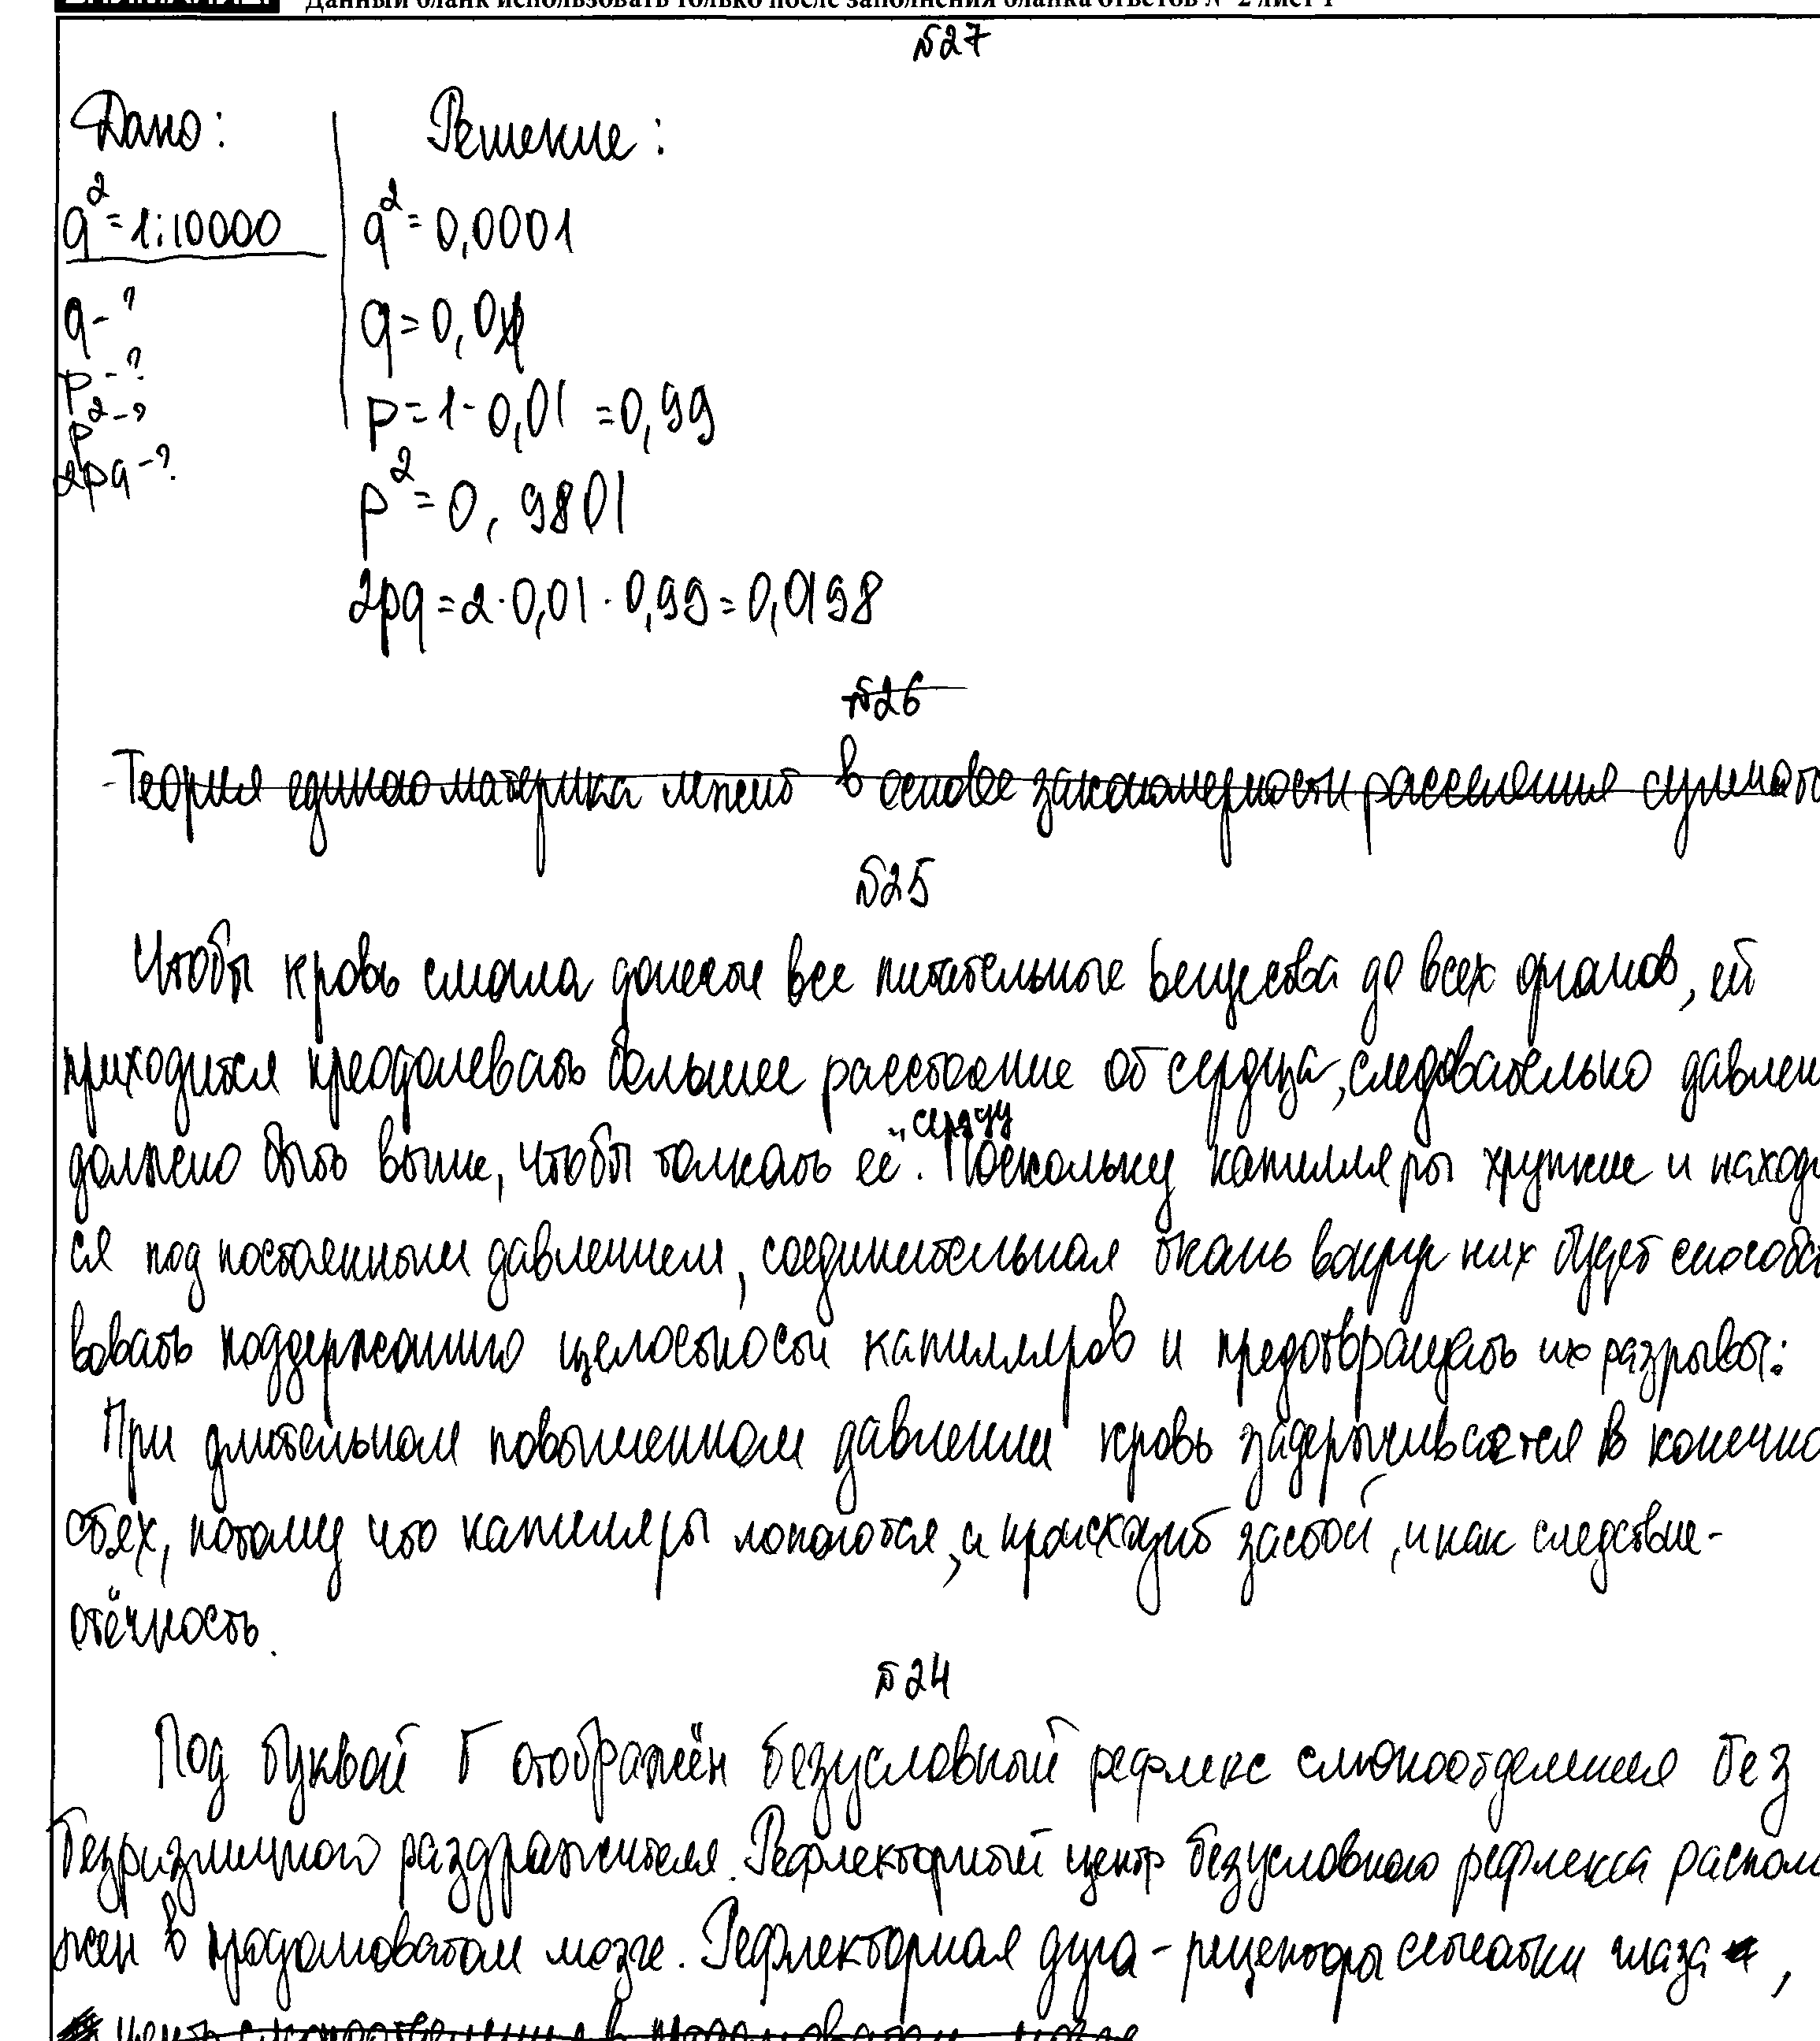 Данный бланк использовать только после заполнения бланка ответов № 2 лист 1
№27
Дано: Решение:
q²=1:10000 q²=0,0001
q-? q=0,01
p-? p=1-0,01=0,99
p²-? p²=0,9801
2pq-? 2pq=2·0,01·0,99=0,0198
№26
Теория единого материка лежит в основе закономерности расселения сумчат
№25
Чтобы кровь смогла донести все питательные вещества до всех органов, ей
приходится преодолевать большее расстояние от сердца, следовательно давлен
должно быть выше, чтобы толкать её сердцу. Поскольку капилляры хрупкие и находя
ся под постоянным давлением, соединительная ткань вокруг них будет способст
вовать поддержанию целостности капилляров и предотвращать их разрывы.
При длительном повышенном давлении кровь задерживается в конечно
стях, потому что капилляры лопаются, и происходит застой, и как следствие-
отёчность.
№24
Под буквой Б отображён безусловный рефлекс слюноотделения без
безразличного раздражителя. Рефлекторный центр безусловного рефлекса распол
жен в продолговатом мозге. Рефлекторная дуга - рецепторы сетчатки глаза,
центр слюноотделения в продолговатом мозге